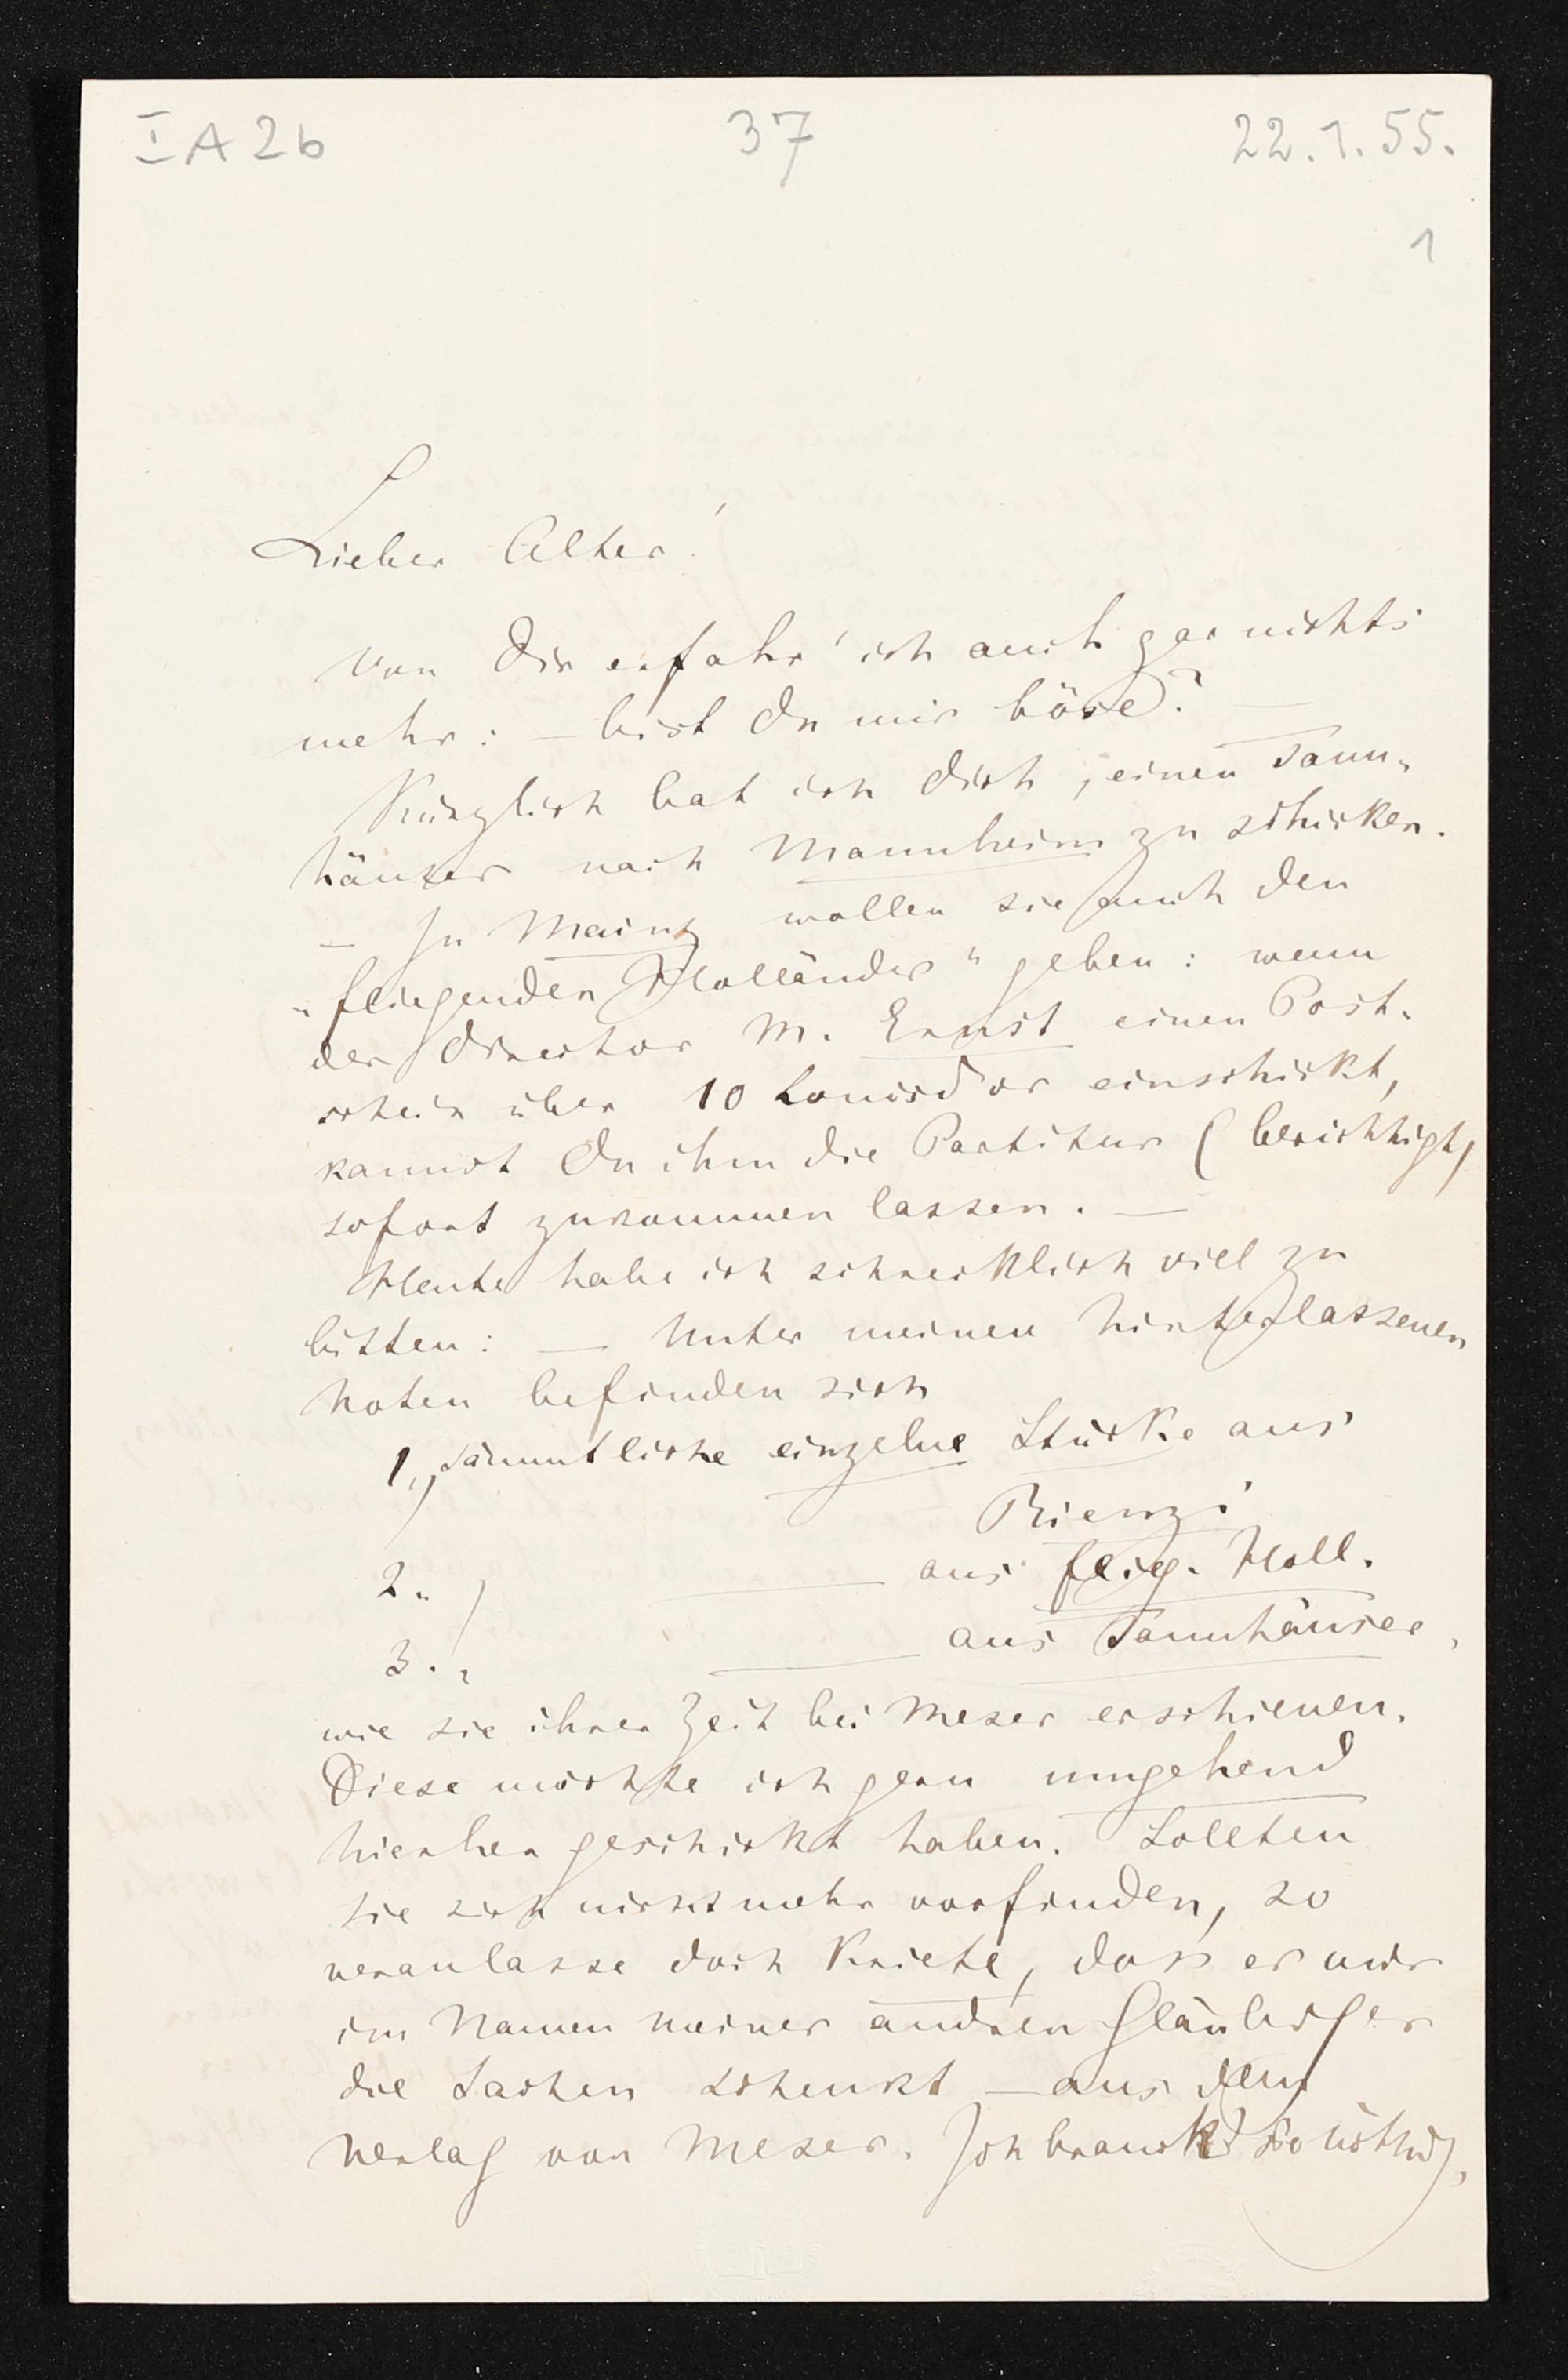 I A 2b 37 22.1.55.
1
Lieber Alter!
Von Dir erfahr' ich auch gar nichts
mehr: – bist Du mir böse? –
Kürzlich bat ich Dich, einen Tann-
häuser nach Mannheim zu schicken.
– In Mainz wollen sie auch den
„fliegenden Holländer“ geben: wenn
der Director M. Ernst einen Post-
schein über 10 Louisdor einschickt,
kannst Du ihm die Partitur (berichtigt)
sofort zukommen lassen. –
Heute habe ich schrecklich viel zu
bitten: – Unter meinen hinterlassenen
Noten befinden sich
1., sämmtliche einzelne Stücke aus
Rienzi
2., — aus flieg. Holl.
3., — aus Tannhäuser,
wie sie ihrer Zeit bei Meser erschienen.
Diese möchte ich gern umgehend
hierher geschickt haben. Sollten
sie sich nicht mehr vorfinden, so
veranlasse doch Kriete, dass er mir
im Namen meiner andren Gläubiger
die Sachen schenkt – aus dem
Verlag von Meser. Ich brauche sie nöthig,